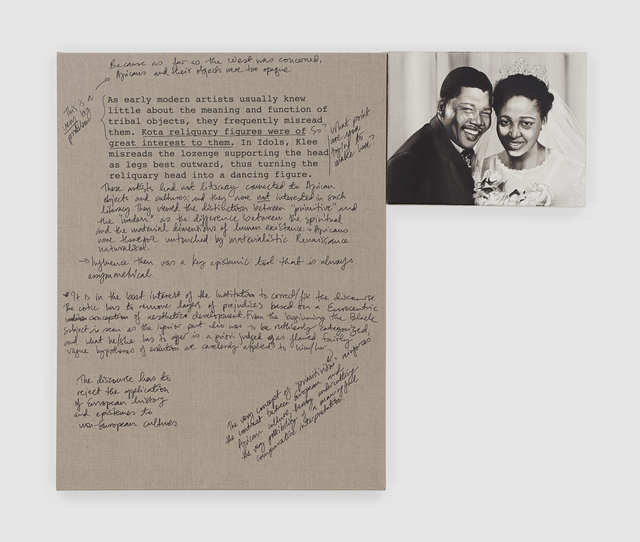 Because as far as the West was concerned,
Africans and their objects were too opaque
This is a
very big
problem
As early modern artists usually knew
little about the meaning and function of
tribal objects, they frequently misread
them. Kota reliquary figures were of
great interest to them. In Idols, Klee
misreads the lozenge supporting the head
as legs best outward, thus turning the
reliquary head into a dancing figure.
So?
What point
are you
trying to
make here?
These artists had not literacy connected to African
objects and cultures; and they were not interested in such
literacy. They viewed the distinction between "primitive" and
the "modern" as the difference between the spiritual
and the material dimensions of human existence. → Africans
were therefor untouched by materialistic Renaissance
naturalism.
→ Influence then was a key epistemic tool that is always
assymetrical
It is in the best interest of the Institution to correct/fix the discourse
The critic has to remove layers of prejudices based on a Eurocentric
conception of aesthetic development. From the beginning the Black
subject is seen as the inferior part who was to be ruthlessly categorized,
and what he/she has to offer is a prior judged as flawed
vague hypotheses of evolution are carelessly applied to him/her
The discourse has to
reject the application
of European history
and epistemes to
non-European cultures
The very concept of primitivism, reinforces
the contrast between European and
African culture, thereby undercutting
the very possibility of a meaningful
comparative interpretation